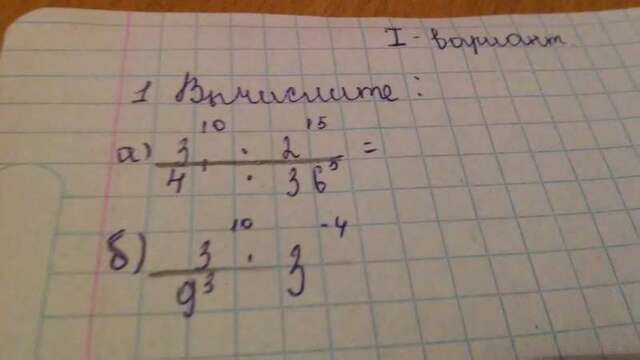 I - вариант
1 Вычислите:
а) 3¹⁰ · 2¹⁵
4 · 36⁵ =
б) 3¹⁰ · 3⁻⁴
9³